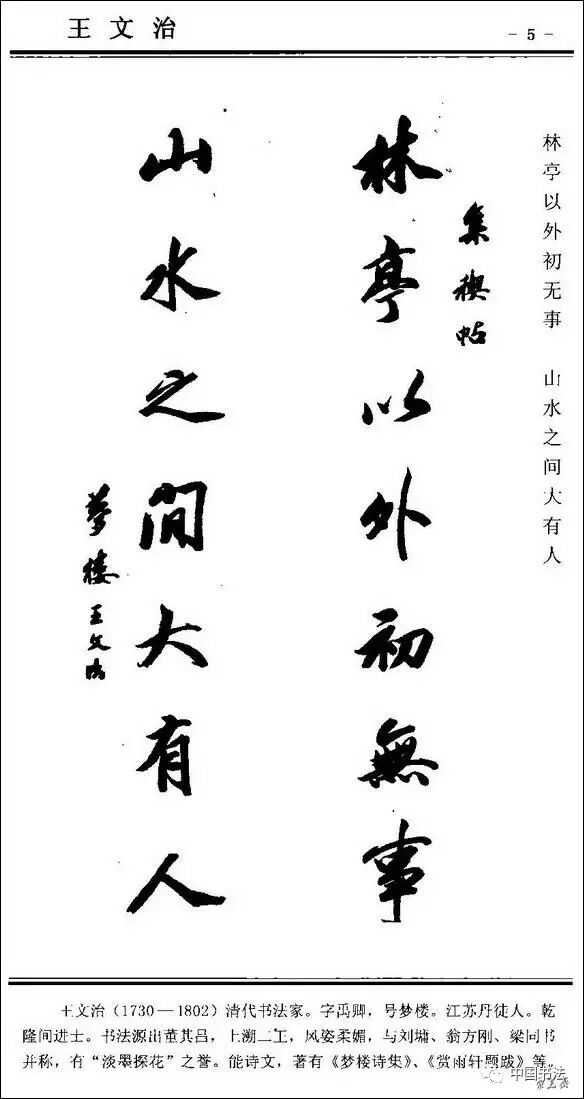 王文治
- 5 -
林亭以外初无事 山水之间大有人
集禊帖
林亭以外初無事
山水之間大有人
夢楼王文治
王文治(1730—1802)清代书法家。字禹卿,号梦楼。江苏丹徒人。乾
隆间进士。书法源出董其昌,上溯二王,风姿柔媚,与刘墉、翁方刚、梁同书
并称,有“淡墨探花”之誉。能诗文,著有《梦楼诗集》、《赏雨轩题跋》等。
中国书法